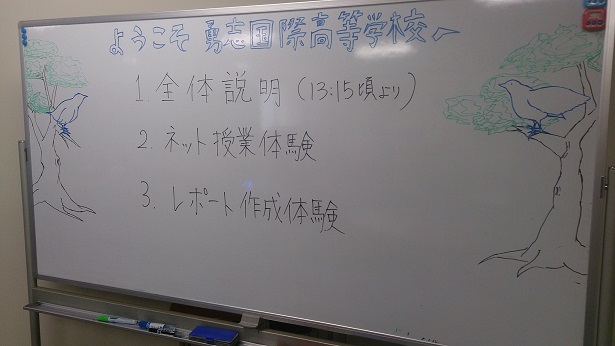 ようこそ 勇志国際高等学校へ
1.全体説明(13:15頃より)
2.ネット授業体験
3.レポート作成体験